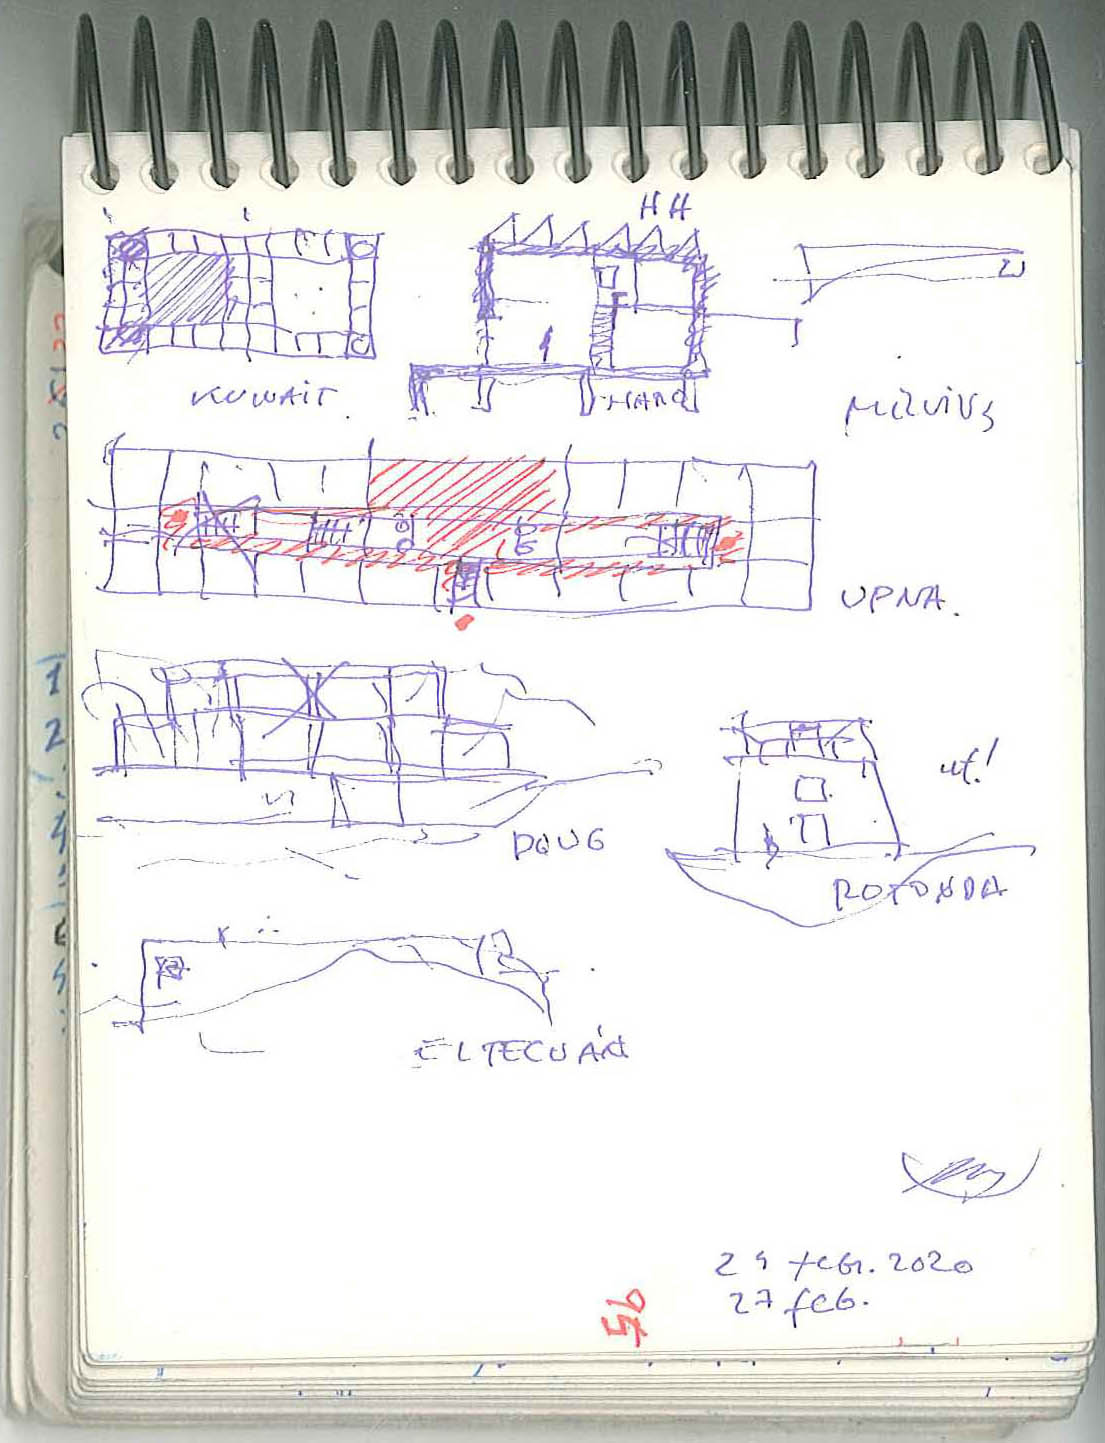 HH
KUWAIT
HARQ
UPNA.
DOUG
ut!
ROTONDA
ELTECUÁN
24 FEB. 2020
27 feb.
56